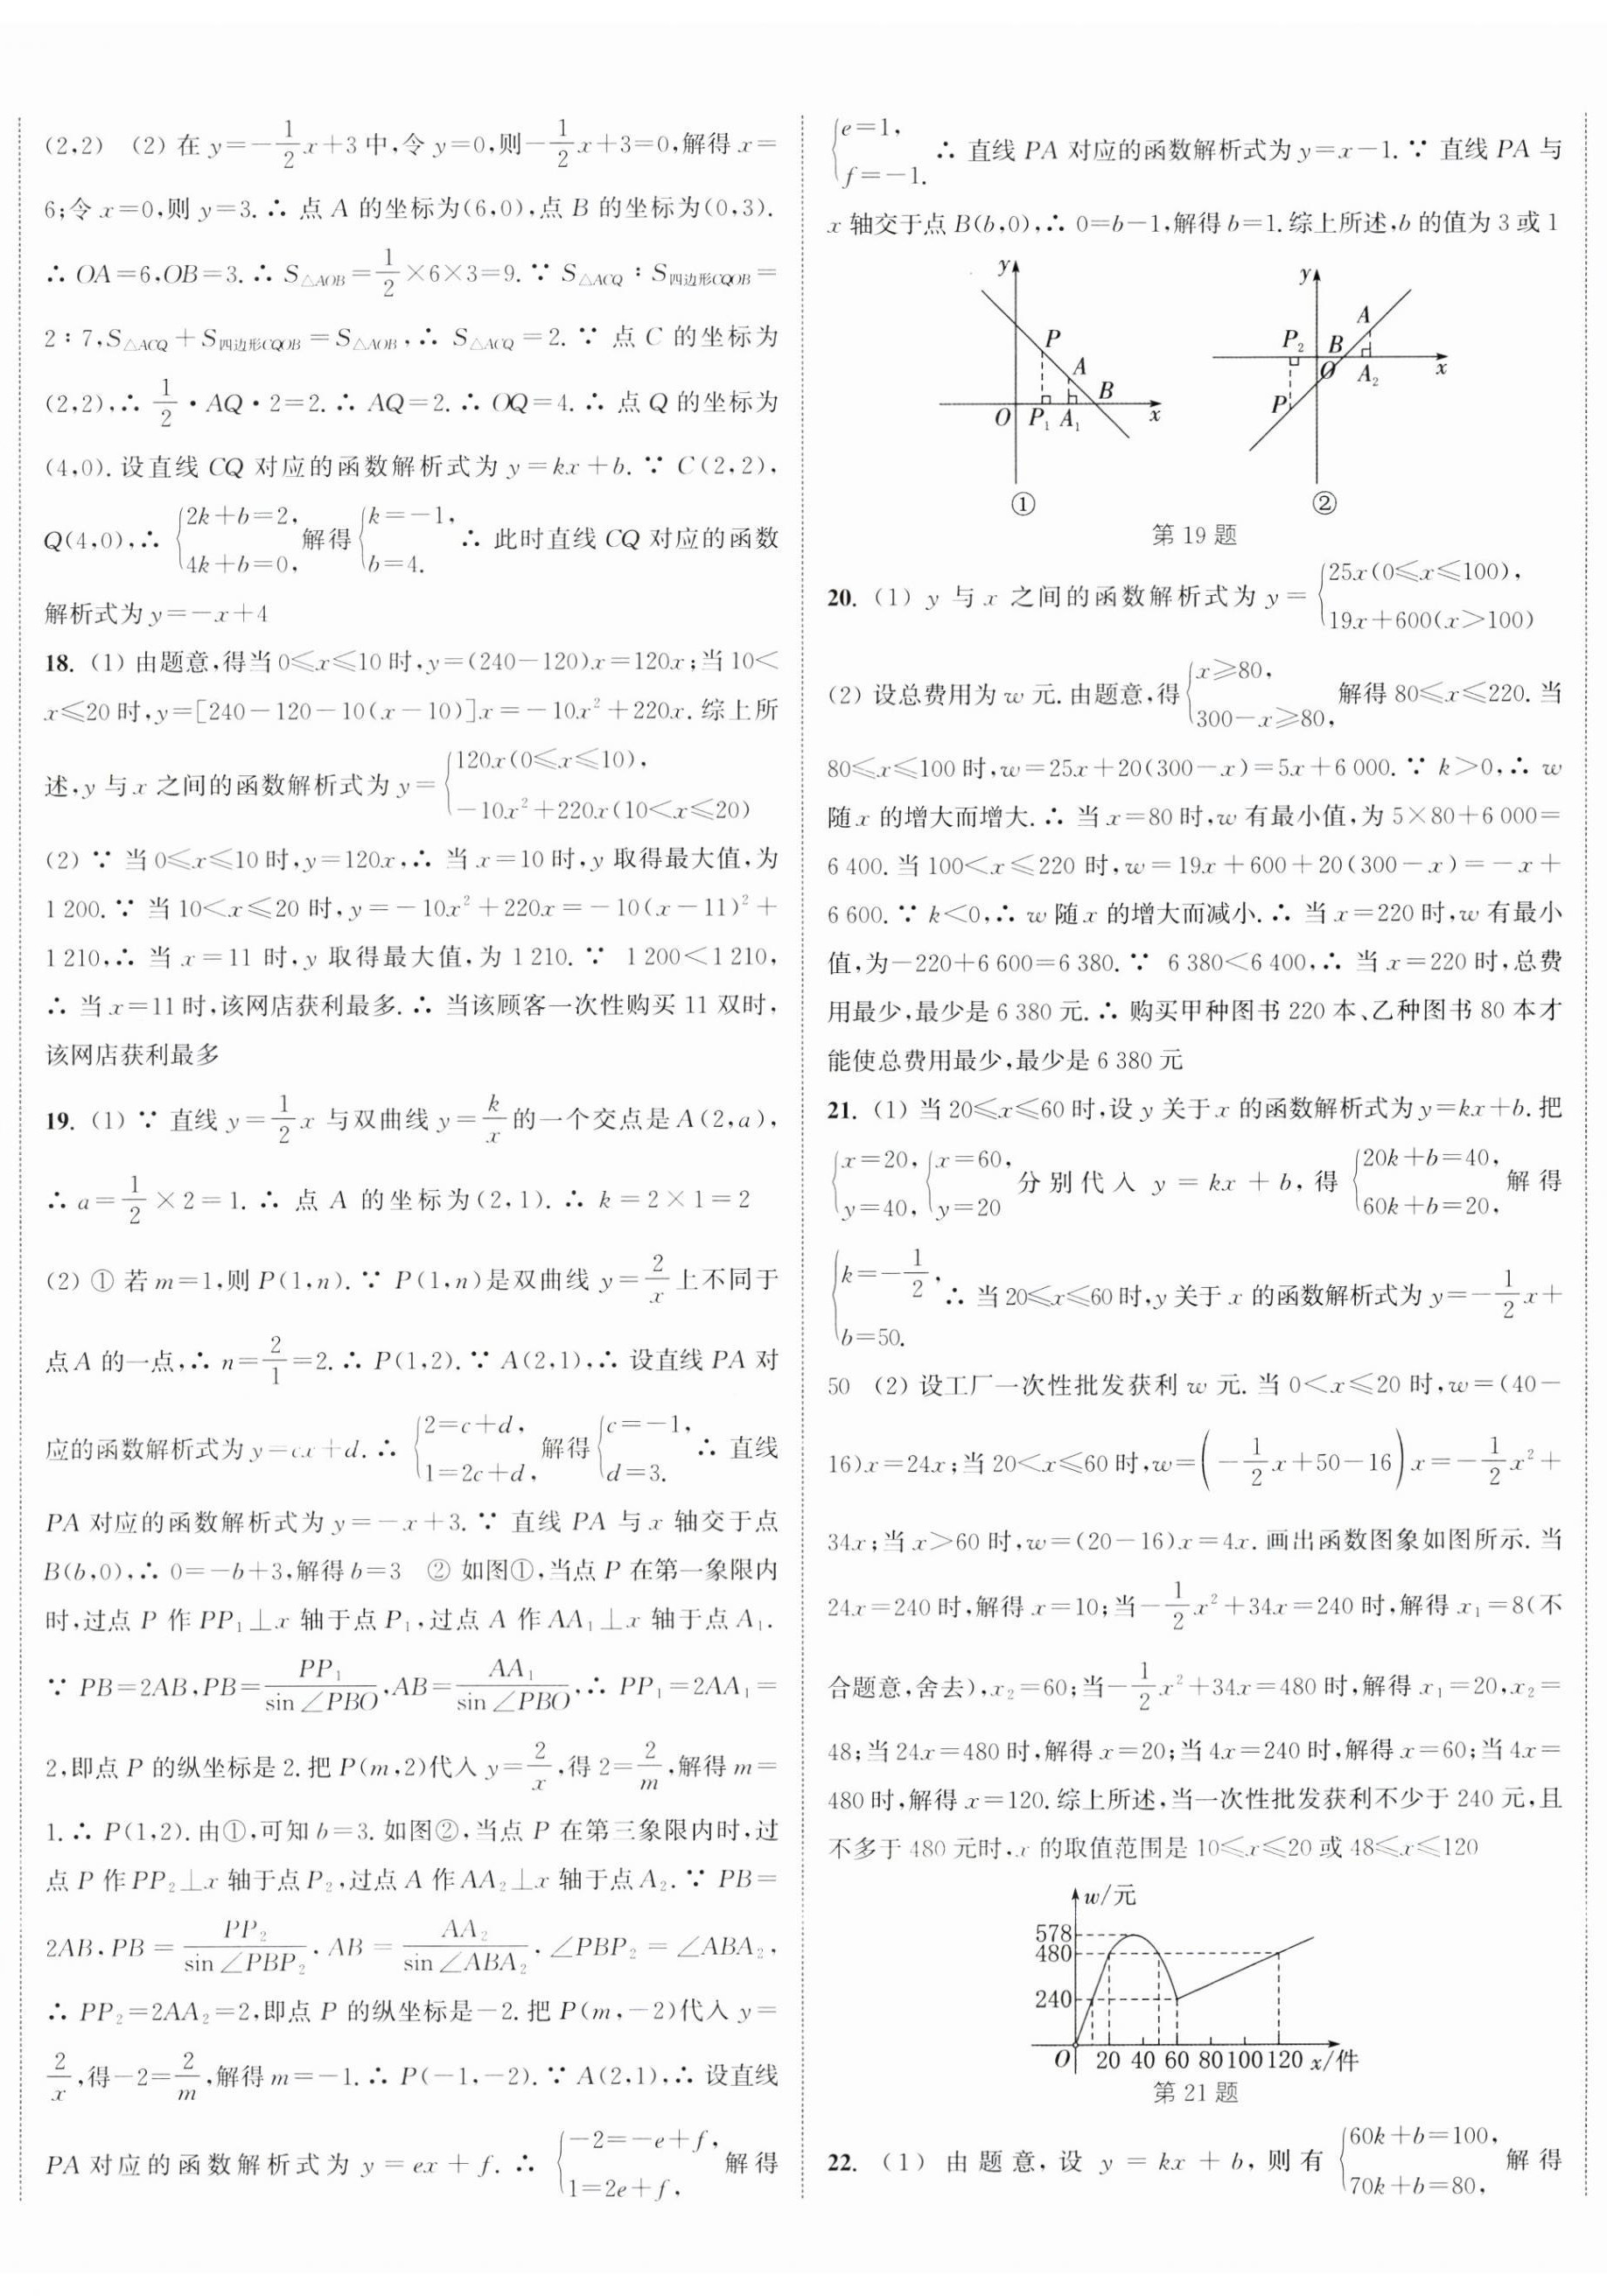 (2,2) (2) 在 y=-\frac{1}{2}x+3 中,令 y=0,则-\frac{1}{2}x+3=0,解得 x=
6;令 x=0,则 y=3.∴ 点 A 的坐标为(6,0),点 B 的坐标为(0,3).
∴ OA=6,OB=3.∴ S△AOB=\frac{1}{2}×6×3=9.∵ S△ACQ∶S四边形CQOB=
2∶7,S△ACQ+S四边形CQOB=S△AOB,∴ S△ACQ=2.∵ 点 C 的坐标为
(2,2),∴ \frac{1}{2}·AQ·2=2.∴ AQ=2.∴ OQ=4.∴ 点 Q 的坐标为
(4,0).设直线 CQ 对应的函数解析式为 y=kx+b.∵ C(2,2),
Q(4,0),∴ {2k+b=2, 4k+b=0, 解得{k=-1, b=4. ∴ 此时直线 CQ 对应的函数
解析式为 y=-x+4
18. (1) 由题意,得当 0≤x≤10 时,y=(240-120)x=120x;当 10<
x≤20 时,y=[240-120-10(x-10)]x=-10x²+220x.综上所
述,y 与 x 之间的函数解析式为 y={120x(0≤x≤10), -10x²+220x(10<x≤20)
(2) ∵ 当 0≤x≤10 时,y=120x,∴ 当 x=10 时,y 取得最大值,为
1 200.∵ 当 10<x≤20 时,y=-10x²+220x=-10(x-11)²+
1 210,∴ 当 x=11 时,y 取得最大值,为 1 210.∵ 1 200<1 210,
∴ 当 x=11 时,该网店获利最多.∴ 当该顾客一次性购买 11 双时,
该网店获利最多
19. (1) ∵ 直线 y=\frac{1}{2}x 与双曲线 y=\frac{k}{x}的一个交点是 A(2,a),
∴ a=\frac{1}{2}×2=1.∴ 点 A 的坐标为(2,1).∴ k=2×1=2
(2) ① 若 m=1,则 P(1,n).∵ P(1,n)是双曲线 y=\frac{2}{x}上不同于
点 A 的一点,∴ n=\frac{2}{1}=2.∴ P(1,2).∵ A(2,1),∴ 设直线 PA 对
应的函数解析式为 y=cx+d.∴ {2=c+d, 1=2c+d, 解得{c=-1, d=3. ∴ 直线
PA 对应的函数解析式为 y=-x+3.∵ 直线 PA 与 x 轴交于点
B(b,0),∴ 0=-b+3,解得 b=3 ② 如图①,当点 P 在第一象限内
时,过点 P 作 PP₁⊥x 轴于点 P₁,过点 A 作 AA₁⊥x 轴于点 A₁.
∵ PB=2AB,PB=\frac{PP₁}{sin∠PBO},AB=\frac{AA₁}{sin∠PBO},∴ PP₁=2AA₁=
2,即点 P 的纵坐标是 2.把 P(m,2)代入 y=\frac{2}{x},得 2=\frac{2}{m},解得 m=
1.∴ P(1,2).由①,可知 b=3.如图②,当点 P 在第三象限内时,过
点 P 作 PP₂⊥x 轴于点 P₂,过点 A 作 AA₂⊥x 轴于点 A₂.∵ PB=
2AB,PB=\frac{PP₂}{sin∠PBP₂},AB=\frac{AA₂}{sin∠ABA₂},∠PBP₂=∠ABA₂,
∴ PP₂=2AA₂=2,即点 P 的纵坐标是-2.把 P(m,-2)代入 y=
\frac{2}{x},得-2=\frac{2}{m},解得 m=-1.∴ P(-1,-2).∵ A(2,1),∴ 设直线
PA 对应的函数解析式为 y=ex+f.∴ {-2=-e+f, 1=2e+f, 解得
{e=1, f=-1. ∴ 直线 PA 对应的函数解析式为 y=x-1.∵ 直线 PA 与
x 轴交于点 B(b,0),∴ 0=b-1,解得 b=1.综上所述,b 的值为 3 或 1
y P A B O P₁ A₁ x
①
y A P₂ B O A₂ x P
②
第 19 题
20. (1) y 与 x 之间的函数解析式为 y={25x(0≤x≤100), 19x+600(x>100)
(2) 设总费用为 w 元.由题意,得{x≥80, 300-x≥80, 解得 80≤x≤220.当
80≤x≤100 时,w=25x+20(300-x)=5x+6 000.∵ k>0,∴ w
随 x 的增大而增大.∴ 当 x=80 时,w 有最小值,为 5×80+6 000=
6 400.当 100<x≤220 时,w=19x+600+20(300-x)=-x+
6 600.∵ k<0,∴ w 随 x 的增大而减小.∴ 当 x=220 时,w 有最小
值,为-220+6 600=6 380.∵ 6 380<6 400,∴ 当 x=220 时,总费
用最少,最少是 6 380 元.∴ 购买甲种图书 220 本、乙种图书 80 本才
能使总费用最少,最少是 6 380 元
21. (1) 当 20≤x≤60 时,设 y 关于 x 的函数解析式为 y=kx+b.把
{x=20, y=40, {x=60, y=20 分别代入 y=kx+b,得{20k+b=40, 60k+b=20, 解得
{k=-\frac{1}{2}, b=50. ∴ 当 20≤x≤60 时,y 关于 x 的函数解析式为 y=-\frac{1}{2}x+
50 (2) 设工厂一次性批发获利 w 元.当 0<x≤20 时,w=(40-
16)x=24x;当 20<x≤60 时,w=(-\frac{1}{2}x+50-16)x=-\frac{1}{2}x²+
34x;当 x>60 时,w=(20-16)x=4x.画出函数图象如图所示.当
24x=240 时,解得 x=10;当-\frac{1}{2}x²+34x=240 时,解得 x₁=8(不
合题意,舍去),x₂=60;当-\frac{1}{2}x²+34x=480 时,解得 x₁=20,x₂=
48;当 24x=480 时,解得 x=20;当 4x=240 时,解得 x=60;当 4x=
480 时,解得 x=120.综上所述,当一次性批发获利不少于 240 元,且
不多于 480 元时,x 的取值范围是 10≤x≤20 或 48≤x≤120
w/元
578
480
240
O 20 40 60 80 100 120 x/件
第 21 题
22. (1) 由题意,设 y=kx+b,则有{60k+b=100, 70k+b=80, 解得